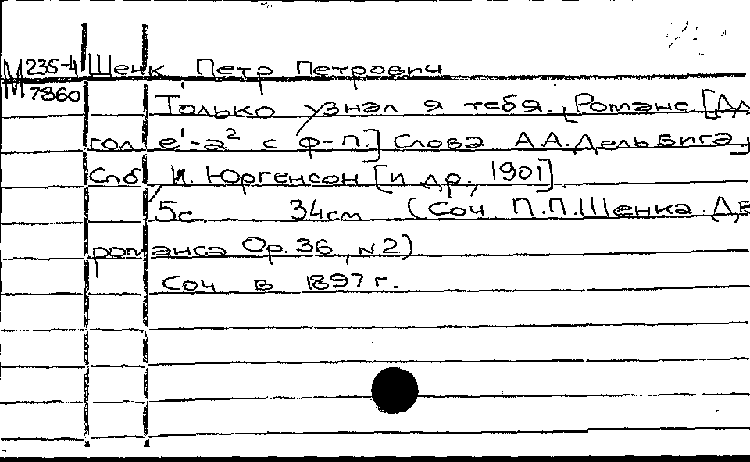 М 235-4 Шенк Петр Петрович
7860
Только узнал я тебя. Романс [Дл
гол е¹-а² с ф-п.] Слова А.А.Дельвига.
Спб И. Юргенсон [и др., 1901]
5с 34см (Соч. П.П.Шенка. Дв
романса Op.36, N2)
Соч в 1897 г.